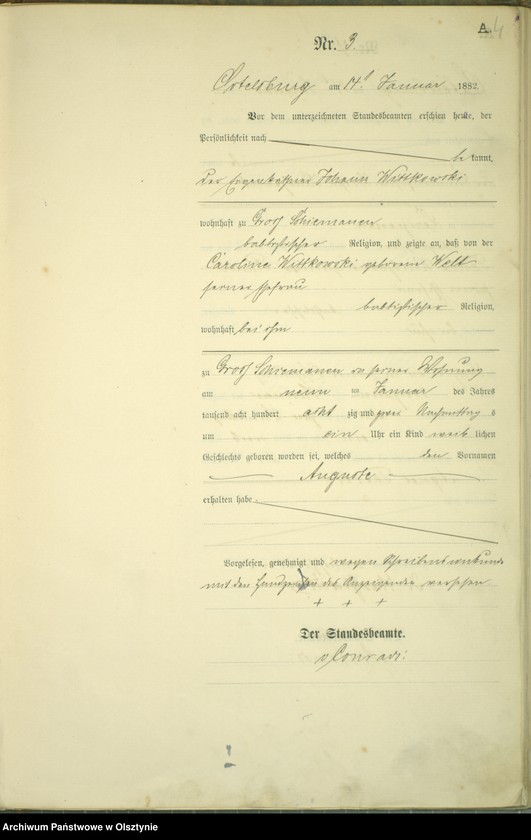 A. 4
Nr. 3.
Ortelsburg am 14t Januar 1882
Vor dem unterzeichneten Standesbeamten erschien heute, der
Persönlichkeit nach
bekannt,
der Eigenkäthner Johann Wittkowski
wohnhaft zu Groß Schiemanen
babtistischer Religion, und zeigte an, daß von der
Caroline Wittkowski geborenen Welt
seiner Ehefrau
babtistischer Religion,
wohnhaft bei ihm
zu Groß Schiemanen in seiner Wohnung
am neun ten Januar des Jahres
tausend acht hundert acht zig und zwei Nachmittag s
um ein Uhr ein Kind weib lichen
Geschlechts geboren worden sei, welches den Vornamen
Auguste
erhalten habe.
Vorgelesen, genehmigt und wegen Schreibensunkunde
mit den Handzeichen des Anzeigenden versehen
+ + +
Der Standesbeamte.
v Conradi:
Archiwum Państwowe w Olsztynie